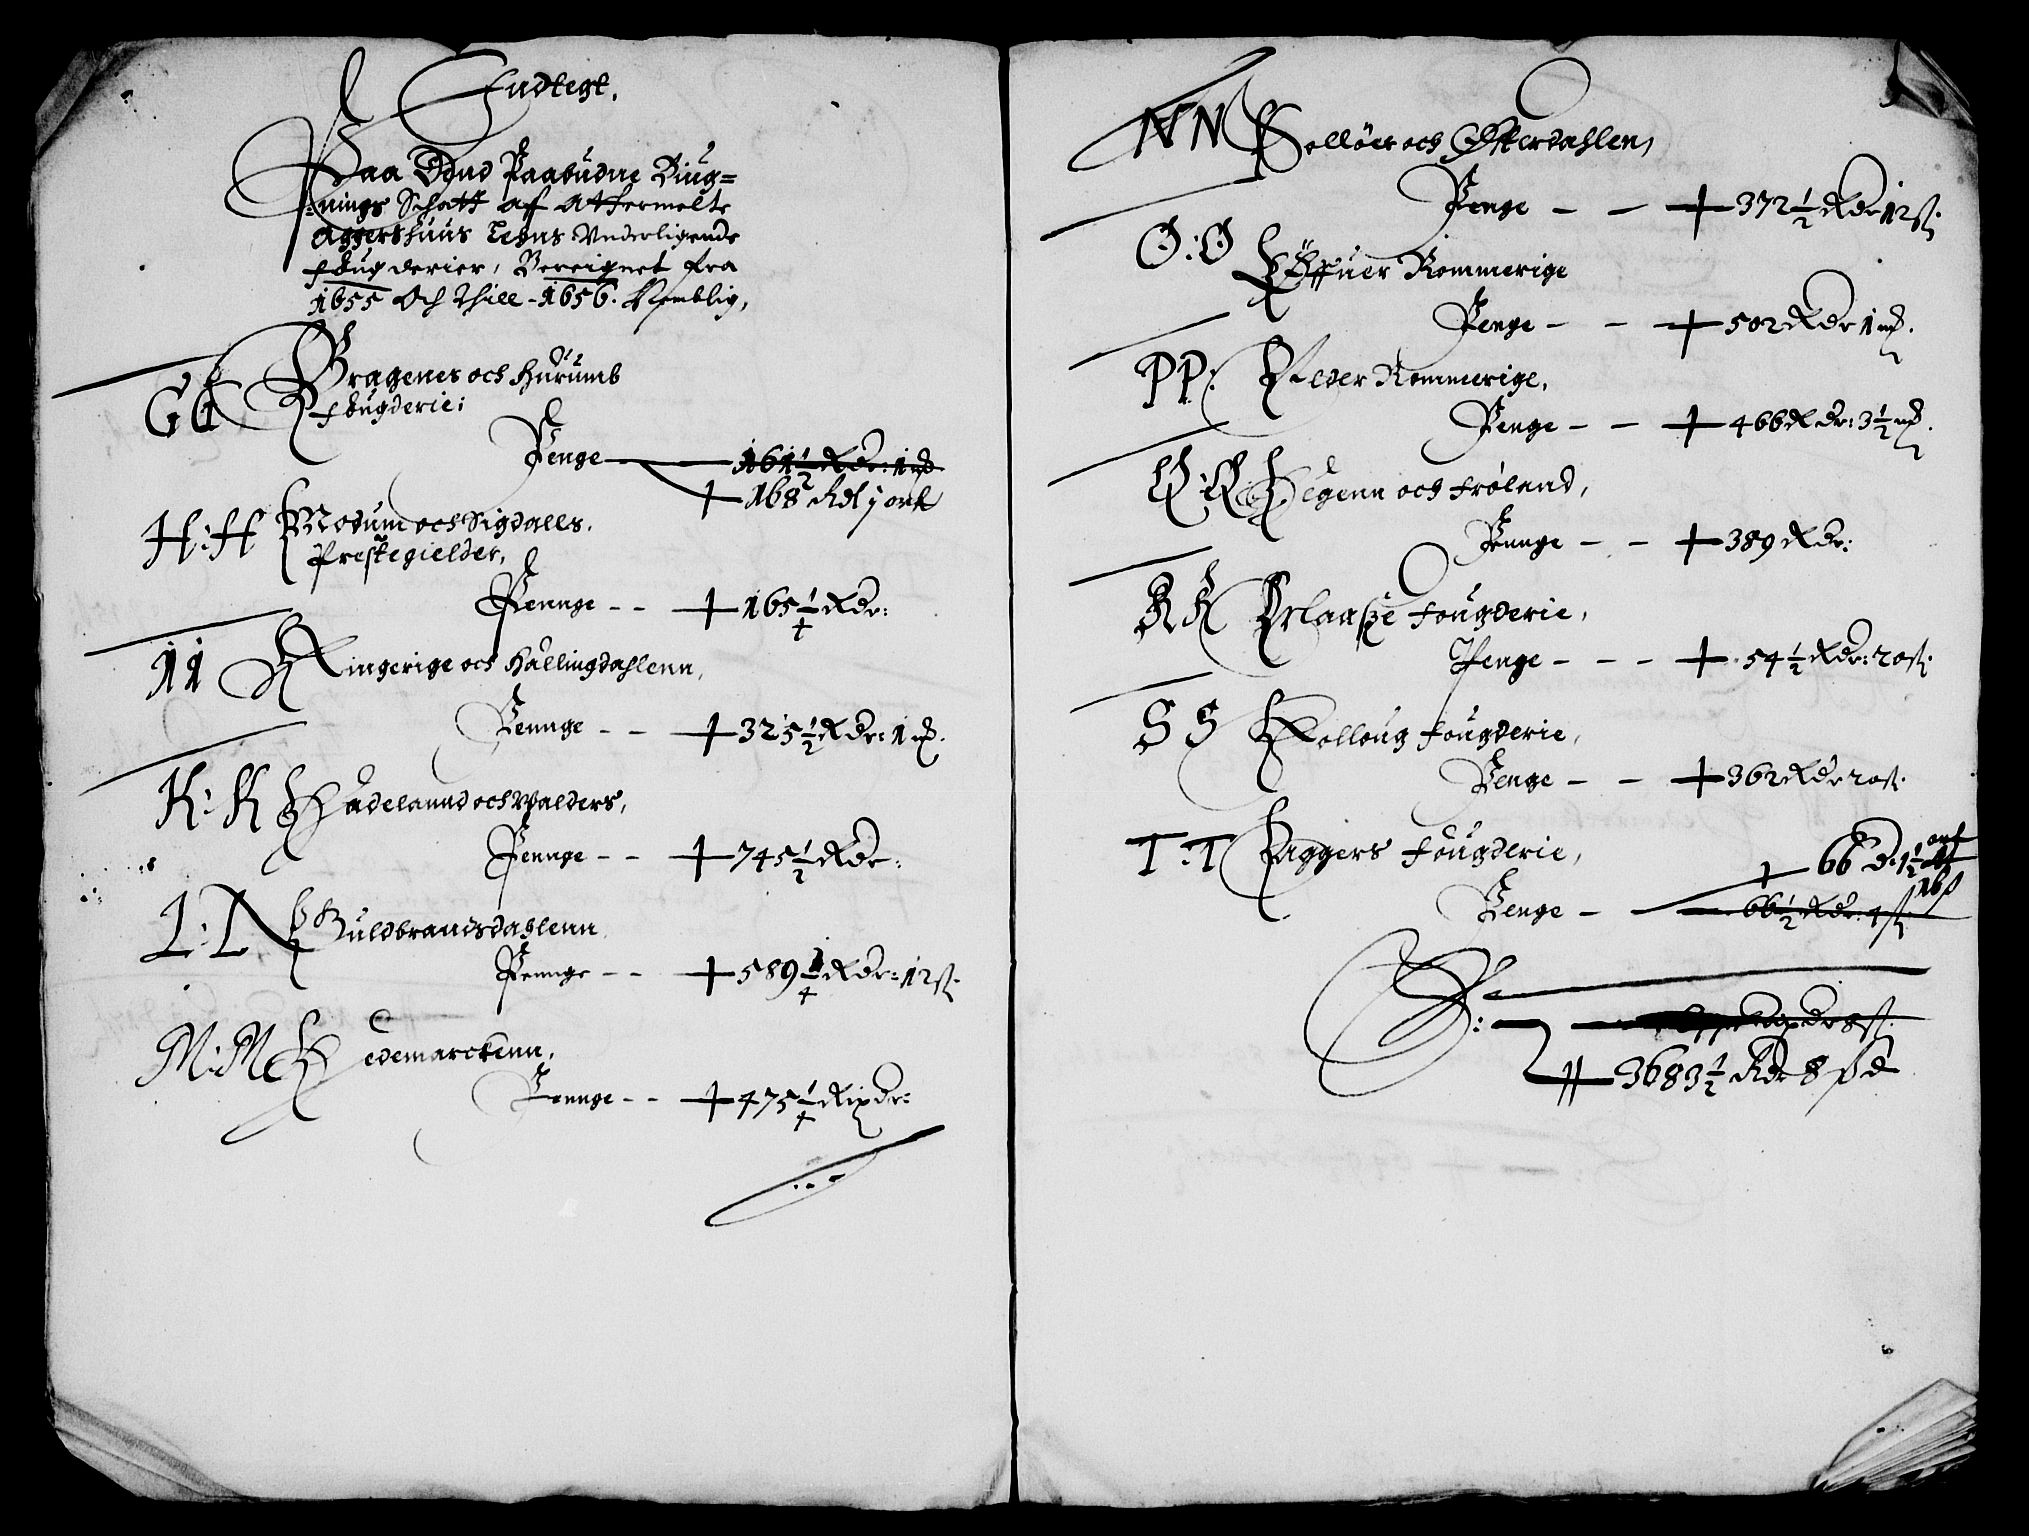 Indtegt,
Paa Dend Paabudne Biug=
:nings Schatt af Attermelte
Aggershuus Lehns Underligende
Fougderier, Bereignet fra
1655 Och Thill - 1656. Nemblig,
GG Bragenes och Hurumb
Fougderie:
Penge 161½ Rdr: 1 mk
+ 168 Rdl 1 ort
H:H Modum och Sigdalls.
Prestegielder,
Pennge - - + 165¼ Rdr:
II Ringerige och Hallingdahlenn,
Pennge - - + 325½ Rdr: 1 mk.
K:K Hadelannd och Valders,
Pennge - - + 745½ Rdr:
L:L Guldbrandsdahlenn
Pennge - - + 589¼ Rdr: 12 sk.
M:M Hedemarckenn,
Pennge - - + 475¼ Rixdr:
NN Solløer och Østerdahlen,
Penge - - + 372½ Rdr 12 sk.
O:O Øffuer Rommerige
Penge - - + 502 Rdr 1 mk.
PP: Neder Rommerige,
Penge - - + 466 Rdr: 3½ mk.
Q:Q Hegenn och Frøland,
Pennge - - + 389 Rdr:
RR Maasse Fougderie,
Penge - - - + 54½ Rdr: 20 sk.
SS Folloug Fougderie,
Penge - - + 362 Rdr 20 sk.
T:T Aggers Fougderie,
+ 66 d. 1½ ort
16 ß
Penge - 66½ Rdr: 4 sk.
3683½ Rdr 8 ß d